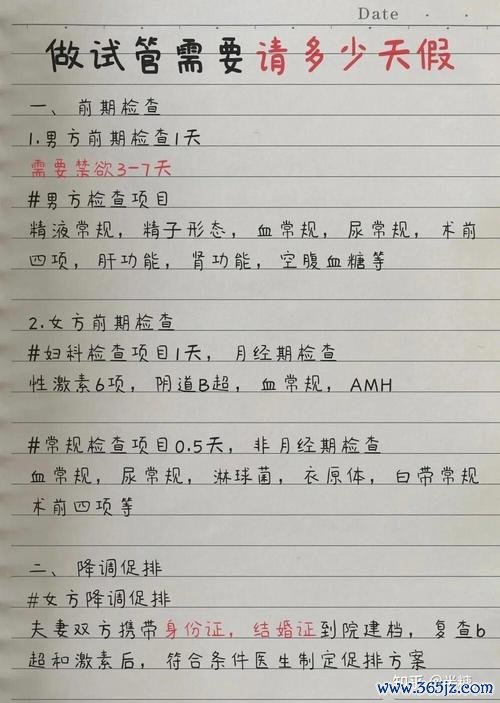 Date · · ·
做试管需要请多少天假
一、前期检查
1.男方前期检查1天
需要禁欲3-7天
#男方检查项目
精液常规，精子形态，血常规，尿常规，术前
四项，肝功能，肾功能，空腹血糖等
2.女方前期检查
#妇科检查项目1天，月经期检查
性激素6项，阴道B超，血常规，AMH
#常规检查项目0.5天，非月经期检查
血常规，尿常规，淋球菌，衣原体，白带常规
术前四项等
二、降调促排
#女方降调促排
夫妻双方携带身份证，结婚证到院建档，复查b
超和激素后，符合条件医生制定促排方案
知乎
www.365jz.com